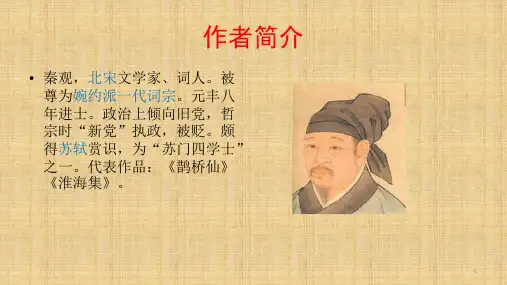 作者简介
• 秦观，北宋文学家、词人。被
尊为婉约派一代词宗。元丰八
年进士。政治上倾向旧党，哲
宗时“新党”执政，被贬。颇
得苏轼赏识，为“苏门四学士”
之一。代表作品：《鹊桥仙》
《淮海集》。